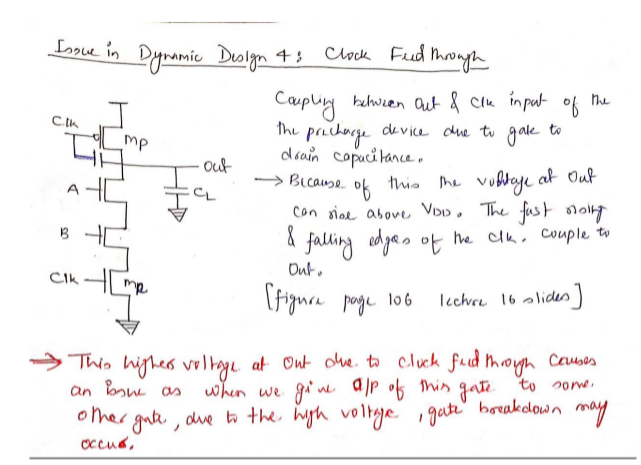 Issue in Dynamic Design 4 : Clock Feed through
Coupling between Out & Clk input of the
the precharge device due to gate to
drain capacitance.
→ Because of this the voltage at Out
can rise above VDD. The fast rising
& falling edges of the clk. couple to
Out.
[figure page 106 lecture 16 slides]
Clk
MP
Out
A
CL
B
Clk
⇒ This higher voltage at Out due to clock feed through causes
an issue as when we give o/p of this gate to some
other gate, due to the high voltage, gate breakdown may
occur.